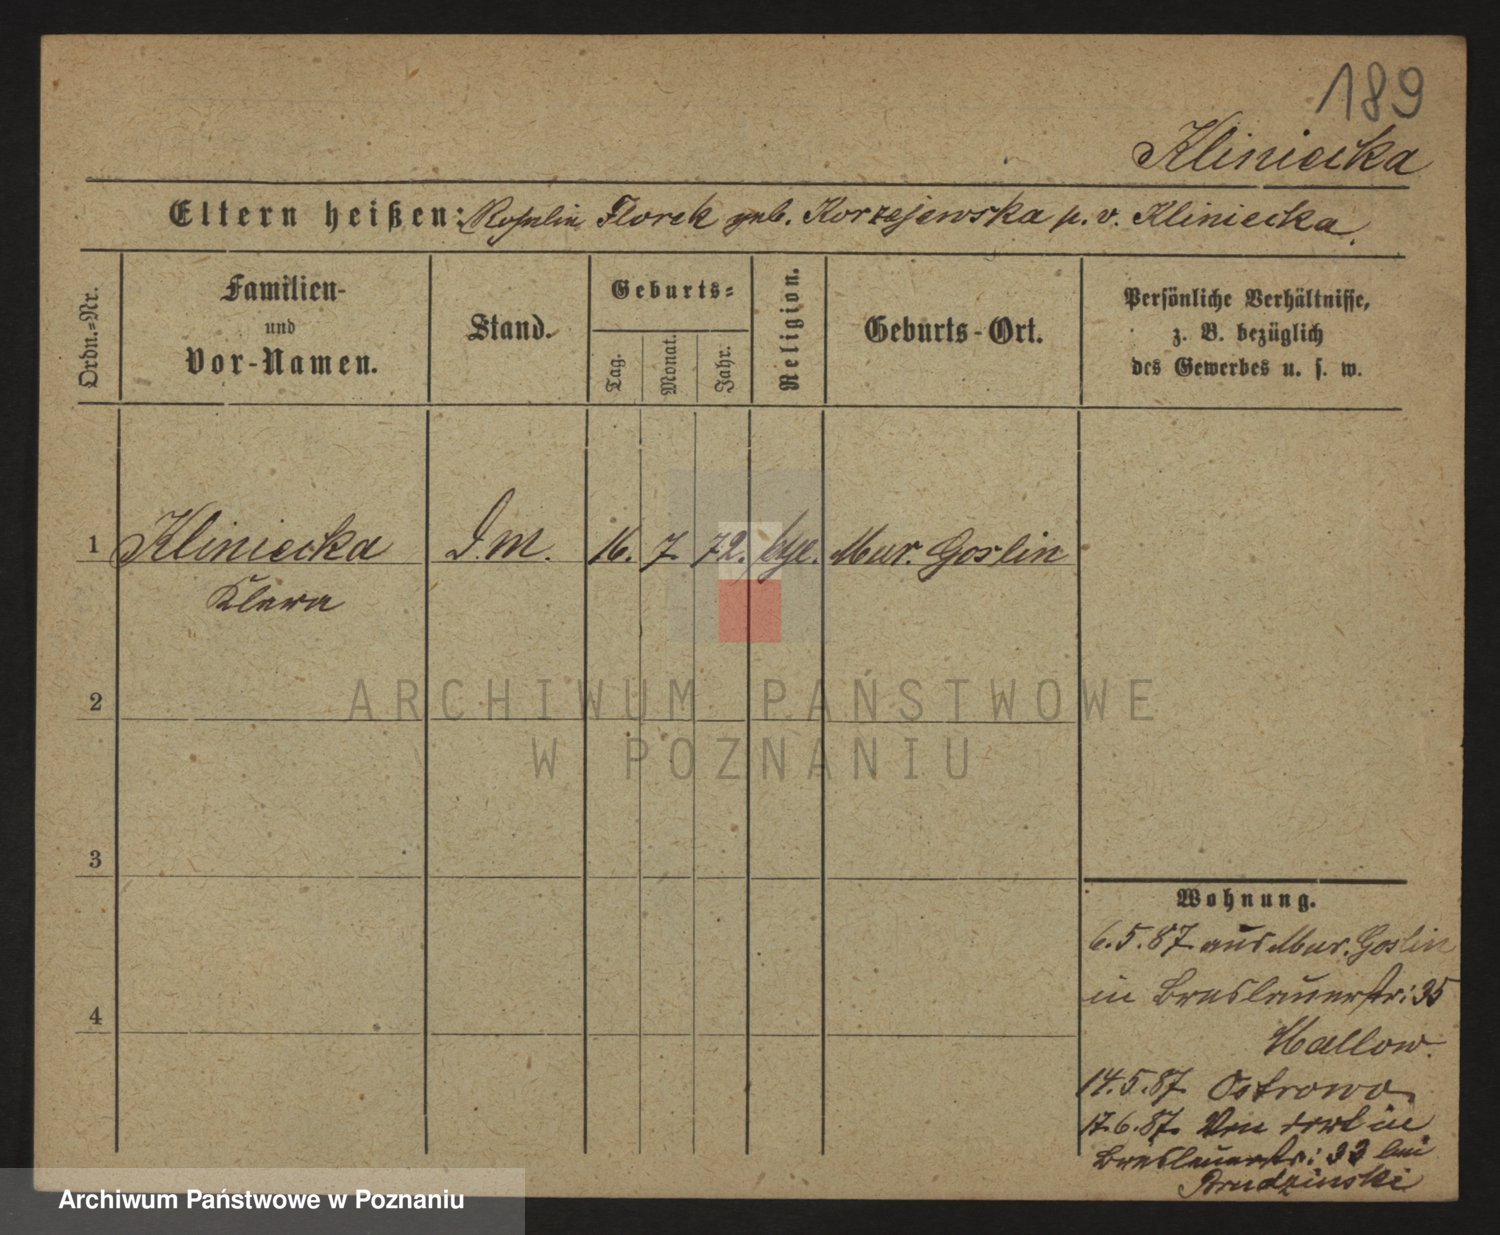 189
Kliniecka
Eltern heißen: Rosalie Florek geb. Korzejewska p. v. Kliniecka.
Ordn.=Nr.
Familien-
und
Vor-Namen.
Stand.
Geburts=
Tag.
Monat.
Jahr.
Religion.
Geburts-Ort.
Persönliche Verhältnisse,
z. B. bezüglich
des Gewerbes u. s. w.
1 Kliniecka D. M. 16. 7. 72. Mur. Goslin
Klara
2
3
4
Wohnung.
6.5.87 aus Mur. Goslin
in Breslauerstr: 35
14.5.87 Ostrowo.
17.6.87. Von dort in
Breslauerstr: 33 bei
Brudzinski
ARCHIWUM PAŃSTWOWE
W POZNANIU
Archiwum Państwowe w Poznaniu